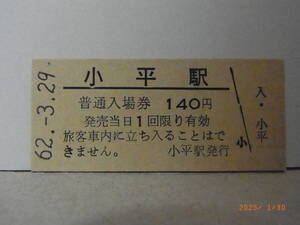 62.-3.29.
小平駅
普通入場券 140円
発売当日1回限り有効
旅客車内に立ち入ることはで
きません。 小平駅発行
入・小平
小
2025/ 1/30